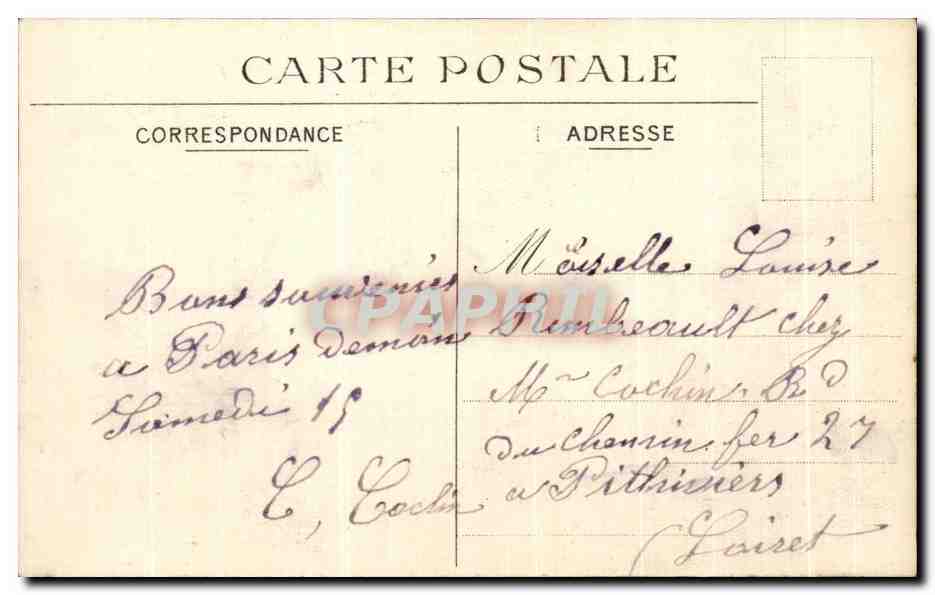 CARTE POSTALE
CORRESPONDANCE
ADRESSE
Bons souvenirs
a Paris demain
Samedi 15
C, Cochin
Moiselle Louise
Rimbeault chez
Mr Cochin Bd
du Chemin fer 27
a Pithiviers
Loiret
CPAPHIL